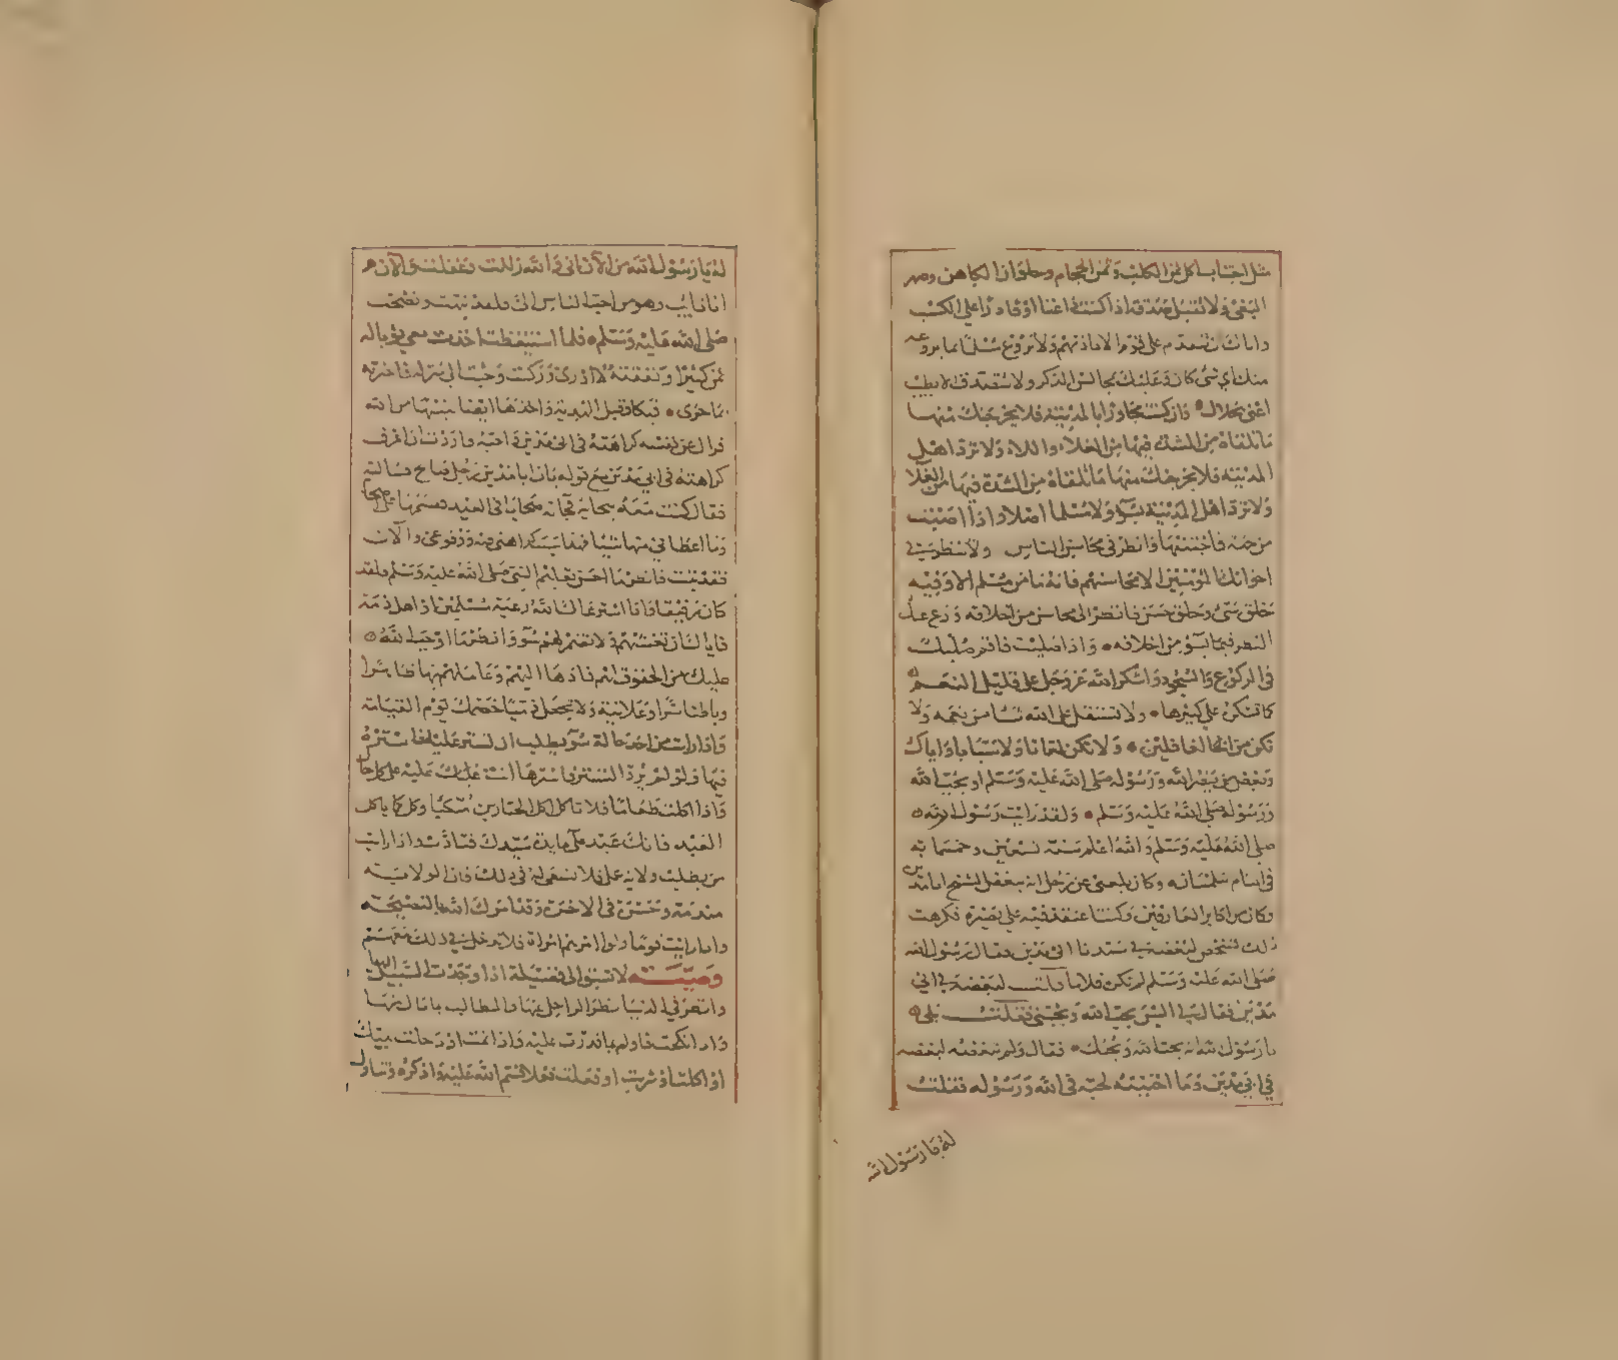 مثل اجتناب اكل ثمن الكلب وثمن الحجام وحلوان الكاهن ومهر
البغي ولا تقبل صدقة اذا كنت غنيا او قادرا على الكسب
واياك ان تتقدم على قوم الا باذنهم ولا تروع مسلما بما يروعه
منك اي شئ كان وعليك بمجالس الذكر ولا تتصدق الا بطيب
اعني بحلال وان كنت مجاورا بالمدينة فلا يخرجنك منها
ما تلقاه من الشدة فيها من الغلاء واللاء ولا ترد اهل
المدينة فلا يخرجنك منها ما تلقاه من الشدة فيها من الغلا
ولا ترد اهل المدينة بسوء ولا مسلما اصلا واذا اصبت
من جهة فاجتنبها وانظر في محاسن الناس ولا تنظر من
اخوانك المؤمنين الا محاسنهم فانه ما من مسلم الا وفيه
خلق سئ وخلق حسن فانظر الى محاسن من اخلاقه ودع عنك
النظر فيما يسوء من اخلاقه واذا صليت فاقم صلبك
في الركوع والسجود واشكر الله عز وجل على قليل النعم
كما تشكره على كثيرها ولا تستقل على الله شيا من نعمه ولا
تكن من الغافلين ولا تكن لعانا ولا سبابا واياك
وبغض من ينصر الله ورسوله صلى الله عليه وسلم او يحب الله
ورسوله صلى الله عليه وسلم ولقد رايت رسول الله
صلى الله عليه وسلم والله اعلم سنة تسعين وخمسمائة
في المنام بتلمسان وكان بلغني عن رجل انه يبغض الشيخ ابا مدين
وكان من اكابر العارفين وكنت اعتقد فيه على بصيرة فكرهت
ذلك الشخص لبغضه في سيدنا ابي مدين فقال رسول الله
صلى الله عليه وسلم لم تكره فلانا قلت لبغضه في ابي
مدين فقال لي اليس يحب الله ويحبني فقلت بلى
يا رسول الله انه يحب الله ويحبك فقال ولم بغضته لبغضه
في ابي مدين وما احببته لحبه في الله ورسوله فقلت
له يا رسول الله
له يا رسول الله من الآن اني والله زللت وغفلت والآن
انا تايب وهو من احب الناس الي فلقد نبهت ونصحت
صلى الله عليه وسلم فلما استيقظت اخذت معي ثوبا له
ثمن كثير او نفقة لا ادري وركبت وجئت الى منزله فاخبرته
بما جرى فبكا وقبل الهدية واخذها ايضا تنبيها من الله
فزال عن نفسه كراهته في ابي مدين واحبه واردت ان اعرف
كراهته في ابي مدين مع قوله بان ابا مدين رجل صالح فسالته
فقال كنت معه ببجاية فجاته ضحايا في العيد فقسمها على اصحابه
وما اعطاني منها شيا فهذا سبب كراهتي فيه ووقوعي والآن
فقد تبت فانظر ما احسن تعليم النبي صلى الله عليه وسلم فلقد
كان رفيقا واذا استرعاك الله رعية مسلمين او اهل ذمة
فاياك ان تغشهم ولا تضمر لهم سوء وانظر ما اوجب الله
عليك من الحقوق لهم فادها اليهم وعاملهم بها ظاهرا
وباطنا سرا وعلانية ولا تجعل ذميا خصمك يوم القيامة
واذا رايت من احد حالة سوء يطلب ان تستر عليه فاستره
فيها ولو لم يرد التستر بسترها انت عليه على كل حال
واذا اكلت طعاما فلا تاكل اكل الجبارين متكيا وكل كما ياكل
العبد فانك عبد على مايدة سيدك فتادب واذا رايت
من يطلب ولاية عمل فلا تسعى له في ذلك فان الولاية
مندمة وحسرة في الاخرة وقد امرك الله بالنصيحة
واذا رايت قوما ولوا امرهم امراة فلا تدخل في ذلك معهم
وصية لا تسبق الى فضيلة اذا وجدت السبيل اليها
وانظر في الدنيا نظر الراحل عنها والمطالب بما نال منها
واذا نكحت فاولم بما قدرت عليه واذا نمت او دخلت بيتك
او اكلت او شربت او فعلت فعلا فسم الله عليه واذكره وتناول